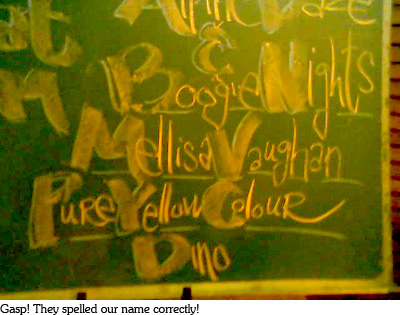 at
m
&
Boogie Nights
Mellisa Vaughan
Pure Yellow Colour
Dino
Gasp! They spelled our name correctly!